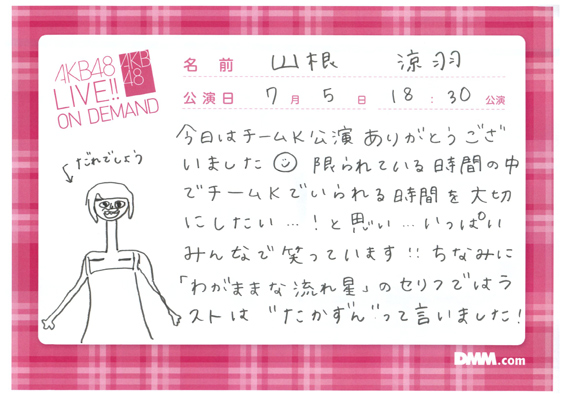 AKB48
LIVE!!
ON DEMAND
AKB
48
名前 山根 涼羽
公演日 7月5日 18:30公演
だれでしょう
今日はチームK公演ありがとうござ
いました 限られている時間の中
でチームKでいられる時間を大切
にしたい…!と思い…いっぱい
みんなで笑っています!!ちなみに
「わがままな流れ星」のセリフではラ
ストは"たかずん"って言いました!
DMM.com